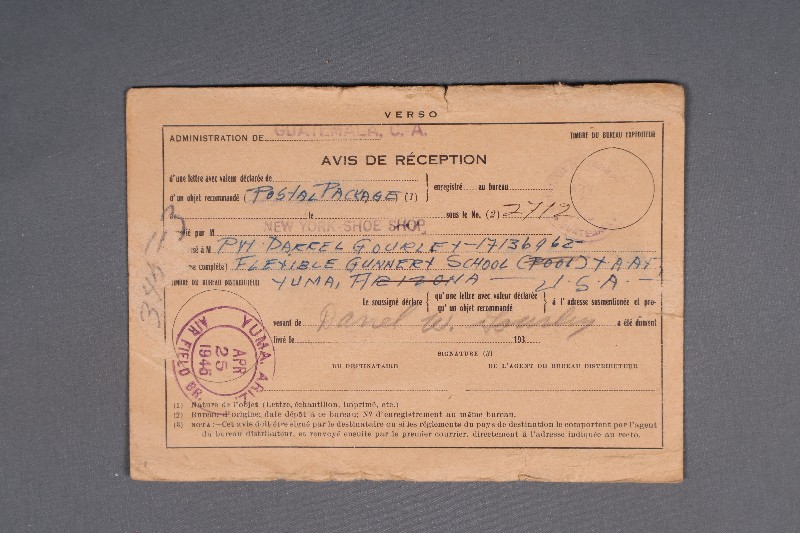 VERSO
ADMINISTRATION DE GUATEMALA, C. A.
TIMBRE DU BUREAU EXPÉDITEUR
AVIS DE RÉCEPTION
d'une lettre avec valeur déclarée de
d'un objet recommandé (POSTAL PACKAGE (1)
enregistré au bureau
le sous le No. (2) 2712
NEW YORK SHOE SHOP
par M
à M PVT. DARREL GOURLEY-17136962
complète) FLEXIBLE GUNNERY SCHOOL (POOL) YAAF,
YUMA, ARIZONA — U.S.A. —
TIMBRE DU BUREAU DISTRIBUTEUR
Le soussigné déclare
qu'une lettre avec valeur déclarée
qu'un objet recommandé
à l'adresse susmentionée et pro-
venant de Darrel W. Gourley a été dûment
livré le 193
SIGNATURE (3)
DU DESTINATAIRE
DE L'AGENT DU BUREAU DISTRIBUTEUR
YUMA, ARIZ.
APR
25
1945
AIR FIELD BR.
(1) Nature de l'objet (Lettre, échantillon, imprimé, etc.)
(2) Bureau d'origine; date dépôt à ce bureau; Nº d'enregistrement au même bureau.
(3) NOTA:—Cet avis doit être signé par le destinataire ou si les réglements du pays de destination le comportent par l'agent
du bureau distributeur, et renvoyé ensuite par le premier courrier, directement à l'adresse indiquée au recto.